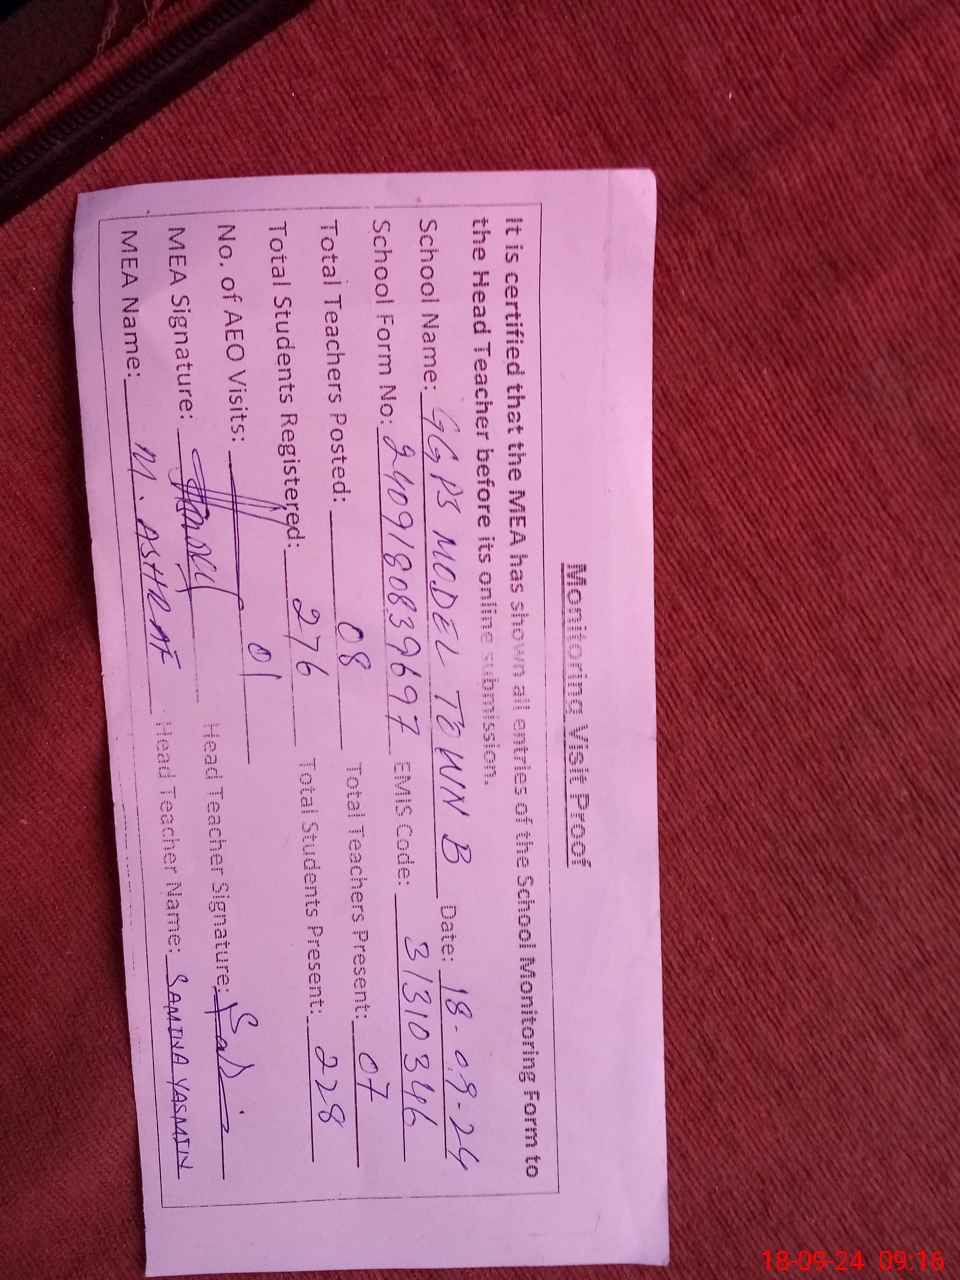 Monitoring Visit Proof
It is certified that the MEA has shown all entries of the School Monitoring Form to
the Head Teacher before its online submission.
School Name: GGPS MODEL TOWN B Date: 18-09-24
School Form No: 2409180839697 EMIS Code: 31310346
Total Teachers Posted: 08 Total Teachers Present: 07
Total Students Registered: 276 Total Students Present: 228
No. of AEO Visits: 01
MEA Signature: Head Teacher Signature:
MEA Name: M. ASHRAF Head Teacher Name: SAMINA YASMIN
18-09-24 09:16